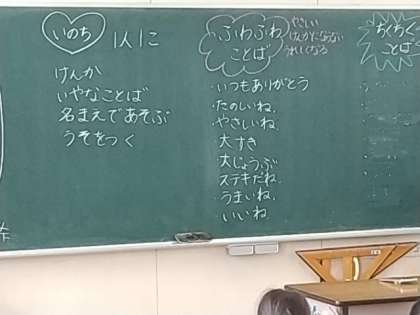 いのち
1人1こ
けんか
いやなことば
名まえであそぶ
うそをつく
ふわふわ
ことば
やさしい
けんかにならない
うれしくなる
・いつもありがとう
・たのしいね。
・やさしいね。
・大すき
・大じょうぶ
・ステキだね。
・うまいね。
・いいね
ちくちく
ことば